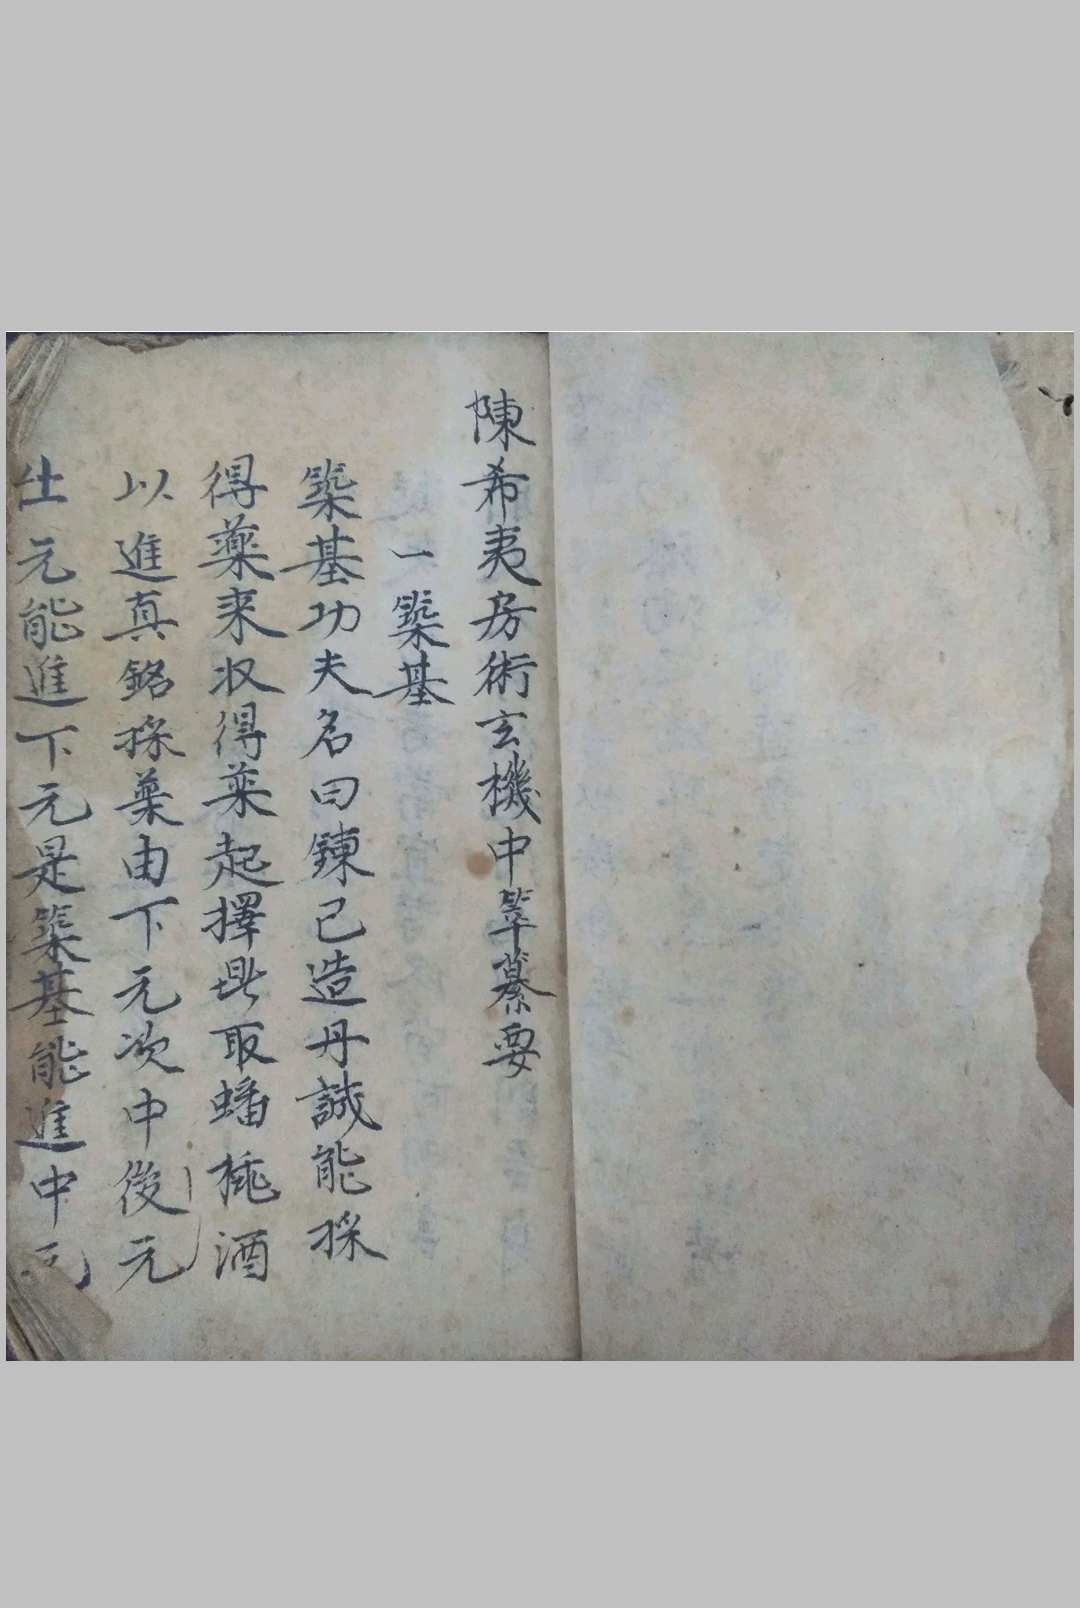 陳希夷房術玄機中篹纂要
一築基
築基功夫名曰鍊己造丹誠能採
得藥来収得藥起擇此取蟠桃酒
以進真鉛採藥由下元次中後元
仕元能進下元是築基能進中元